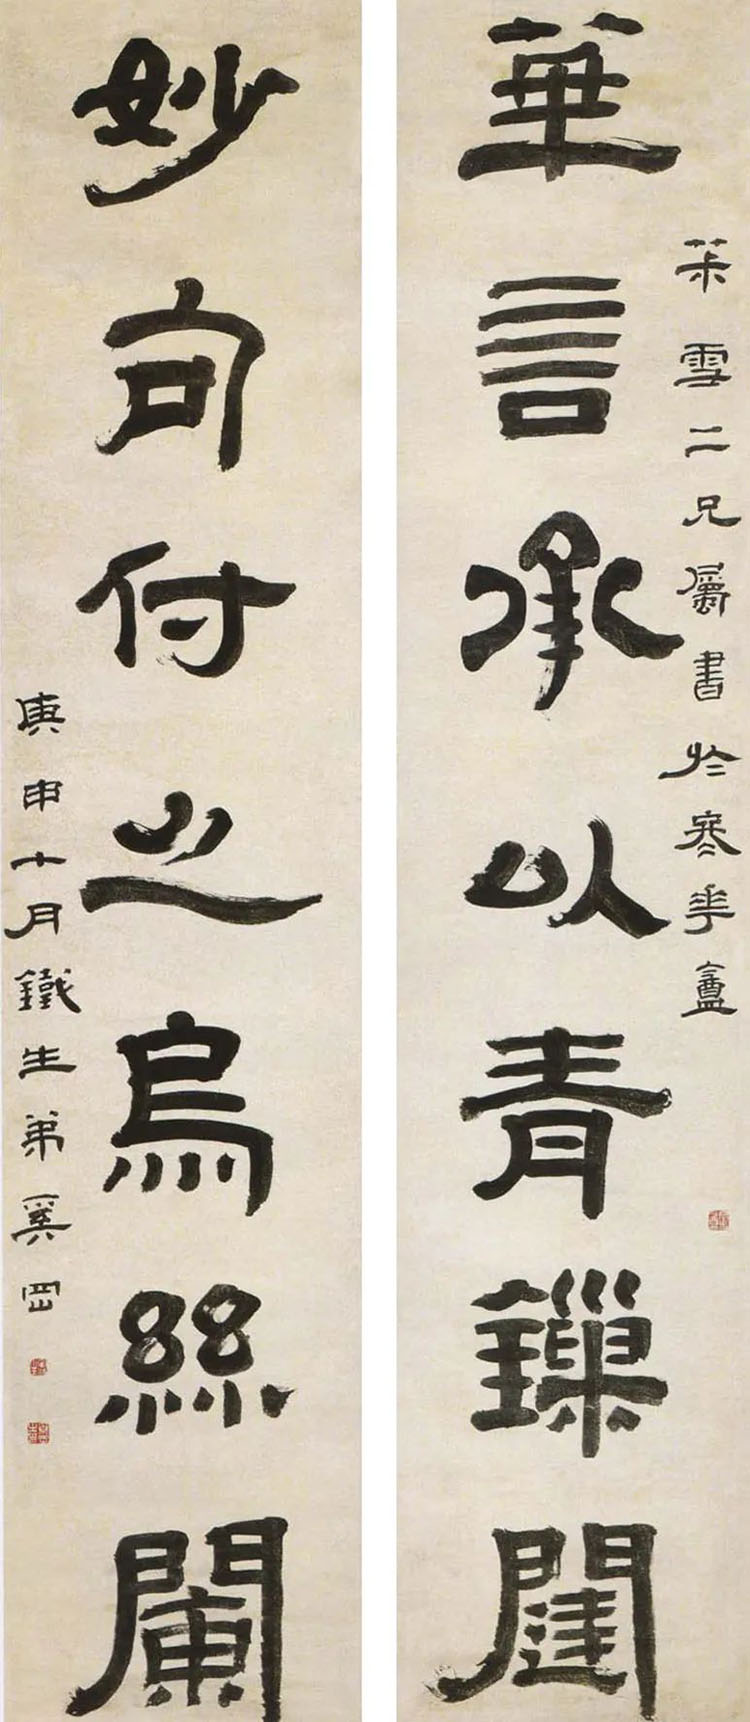 華言承以青鏁闥
雪二兄屬書於寒華盦
妙句付之烏絲闌
庚申十月鐵生弟奚岡